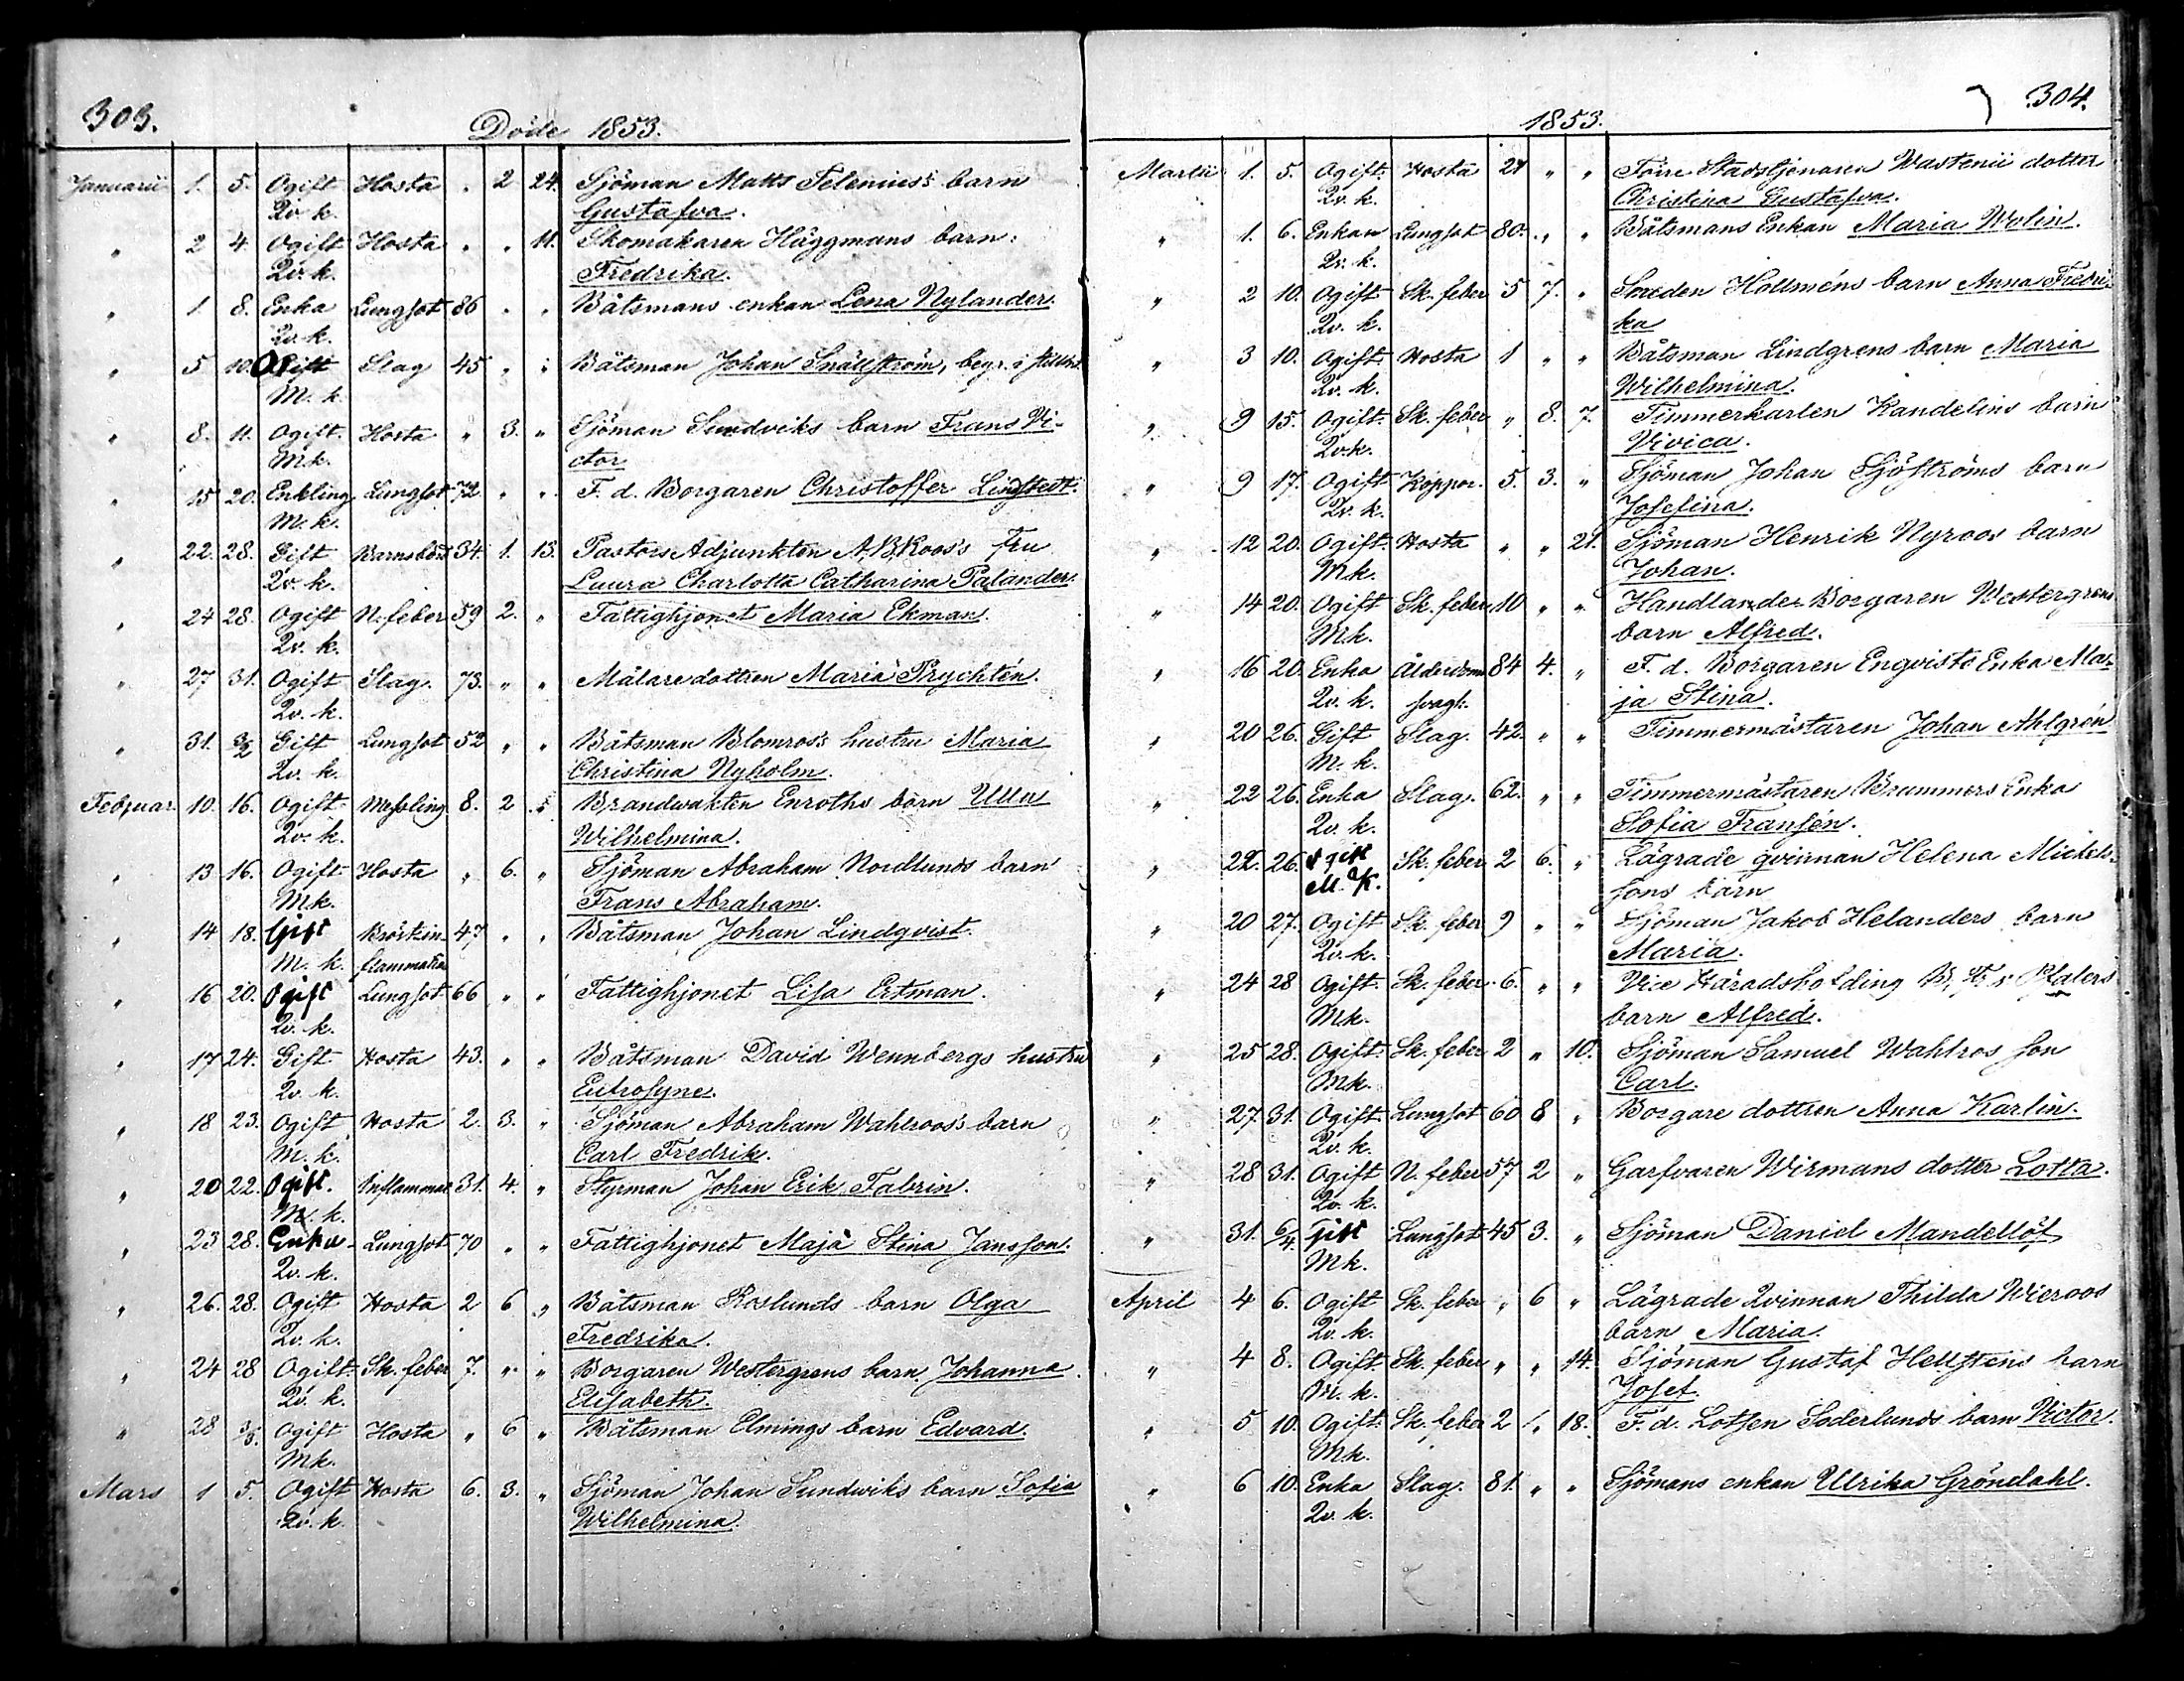 303.
Döde 1853.
Januarii 1. 5. Ogift Hosta " 2 24. Sjöman Matts Seleniuss barn
Qv. k. Gustafva.
" 2 4. Ogift Hosta " " 11. Skomakaren Häggmans barn
Qv. k. Fredrika.
" 1 8. Enka Lungsot 86 " " Båtsmans enkan Lena Nylander
Qv. k.
" 5 10. Ogift Slag 45 " " Båtsman Johan Snällström, begr. i
M. k.
" 8. 11. Ogift. Hosta " 3. " Sjöman Sundviks barn Frans Vi-
M.k. ctor
" 15 20. Enkling Lungsot 72 " " F. d. Borgaren Christoffer Lindstedt.
M. k.
" 22. 28. Gift Barnsbörd 34. 1. 13. Pastors Adjunkten A. B. Roos's Fru
Qv. k. Laura Charlotta Catharina Palander.
" 24 28. Ogift N. feber 59 2. " Fattighjonet Maria Ekman.
Qv. k.
" 27 31. Ogift Slag. 73. " " Målaredottren Maria Prychtén.
Qv. k.
" 31. 3/2 Gift Lungsot 52 " " Båtsman Blomros's hustru Maria
Qv. k. Christina Nyholm.
Februar. 10. 16. Ogift Messling 8. 2 " Brandwakten Enroths barn Ulla
Qv. k. Wilhelmina.
" 13 16. Ogift Hosta " 6. " Sjöman Abraham Nordlunds barn
M.k. Frans Abraham.
" 14 18. Gift Bröstin- 47 " " Båtsman Johan Lindqvist.
M. k. flammation
" 16 20. Ogift Lungsot 66 " " Fattighjonet Lisa Ertman.
Qv. k.
" 17 24. Gift Hosta 43. " " Båtsman David Wennbergs hustru
Qv. k. Eutrosyne.
" 18 23. Ogift Hosta 2. 3. " Sjöman Abraham Wahlroos's barn
M. k. Carl Fredrik.
" 20 22. Ogift. Inflammat 31. 4. " Styrman Johan Erik Fabrin.
M. k.
" 23 28. Enka Lungsot 70 " " Fattighjonet Maja Stina Jansson.
Qv. k.
" 26. 28. Ogift Hosta 2 6 " Båtsman Roslunds barn Olga
Qv. k. Fredrika.
" 24 28 Ogift Sk. feber 7. " " Borgaren Westergrens barn Johanna
Qv. k. Elisabeth.
" 28 3/3. Ogift Hosta " 6 " Båtsman Elmings barn Edvard.
Mk.
Mars 1 5. Ogift Hosta 6. 3. " Sjöman Johan Sundwiks barn Sofia
Qv. k. Wilhelmina.
304.
1853.
Martii 1. 5. Ogift. Hosta 21 " " Förre Stadstjenaren Wastenii dotter
Qv. k. Christina Gustafva.
" 1. 6. Enkan Lungsot 80. " " Båtsmans Enkan Maria Wolin.
Qv. k.
" 2 10. Ogift Sk. feber 5 7. " Smeden Hollméns barn Anna Fredri-
Qv. k. ka
" 3 10. Ogift. Hosta 1 " " Båtsman Lindgrens barn Maria
Qv. k. Wilhelmina.
" 9 15. Ogift. Sk. feber " 8. 7. Timmerkarlen Kandelins barn
Qv.k. Vivica.
" 9 17. Ogift Koppor. 5. 3. " Sjöman Johan Sjöströms barn
Qv. k. Josefina.
" 12 20. Ogift. Hosta " " 21. Sjöman Henrik Nyroos barn
Mk. Johan.
" 14 20. Ogift Sk. feber 10 " " Handlande Borgaren Westergrens
Mk. barn Alfred.
" 16 20. Enka Ålderdoms 84 4. " F. d. Borgaren Engvists Enka Ma-
Qv. k. svagh. ja Stina.
" 20 26. Gift Slag. 42. " " Timmermästaren Johan Ahlgrén
M. k.
" 22 26. Enka Slag. 62. " " Timmermästaren Brummers Enka
Qv. k. Sofia Fransén.
" 22. 26. Ogift Sk. feber 2 6. " Lägrade qvinnan Helena Mickels-
M. K. sons barn
" 20 27. Ogift Sk. feber 9 " " Sjöman Jakob Helanders barn
Qv. k. Maria.
" 24 28 Ogift. Sk. feber 6. " " Vice Häradshöfding
Mk. barn Alfred.
" 25 28. Ogift. Sk. feber 2 " 10. Sjöman Samuel Wahlros son
Mk. Carl.
" 27. 31. Ogift. Lungsot 60 8 " Borgare dottren Anna Karlin.
Qv. k.
" 28 31. Ogift N. feber 57 2 " Garfvaren Wirmans dotter Lotta.
Qv. k.
" 31. 6/4. Gift Lungsot 45 3. " Sjöman Daniel Mandellöf
Mk.
April 4 6. Ogift Sk. feber " 6 " Lägrade Qvinnan Thilda Wieroos
Qv. k. barn Maria.
" 4 8. Ogift Sk. feber " " 14. Sjöman Gustaf Hellstens barn
M. k. Josef.
" 5 10. Ogift. Sk. feber 2 " 18. F. d. Lotsen Söderlunds barn Victor.
Mk.
" 6 10. Enka Slag. 81. " " Sjömans enkan Ulrika Gröndahl.
Qv. k.